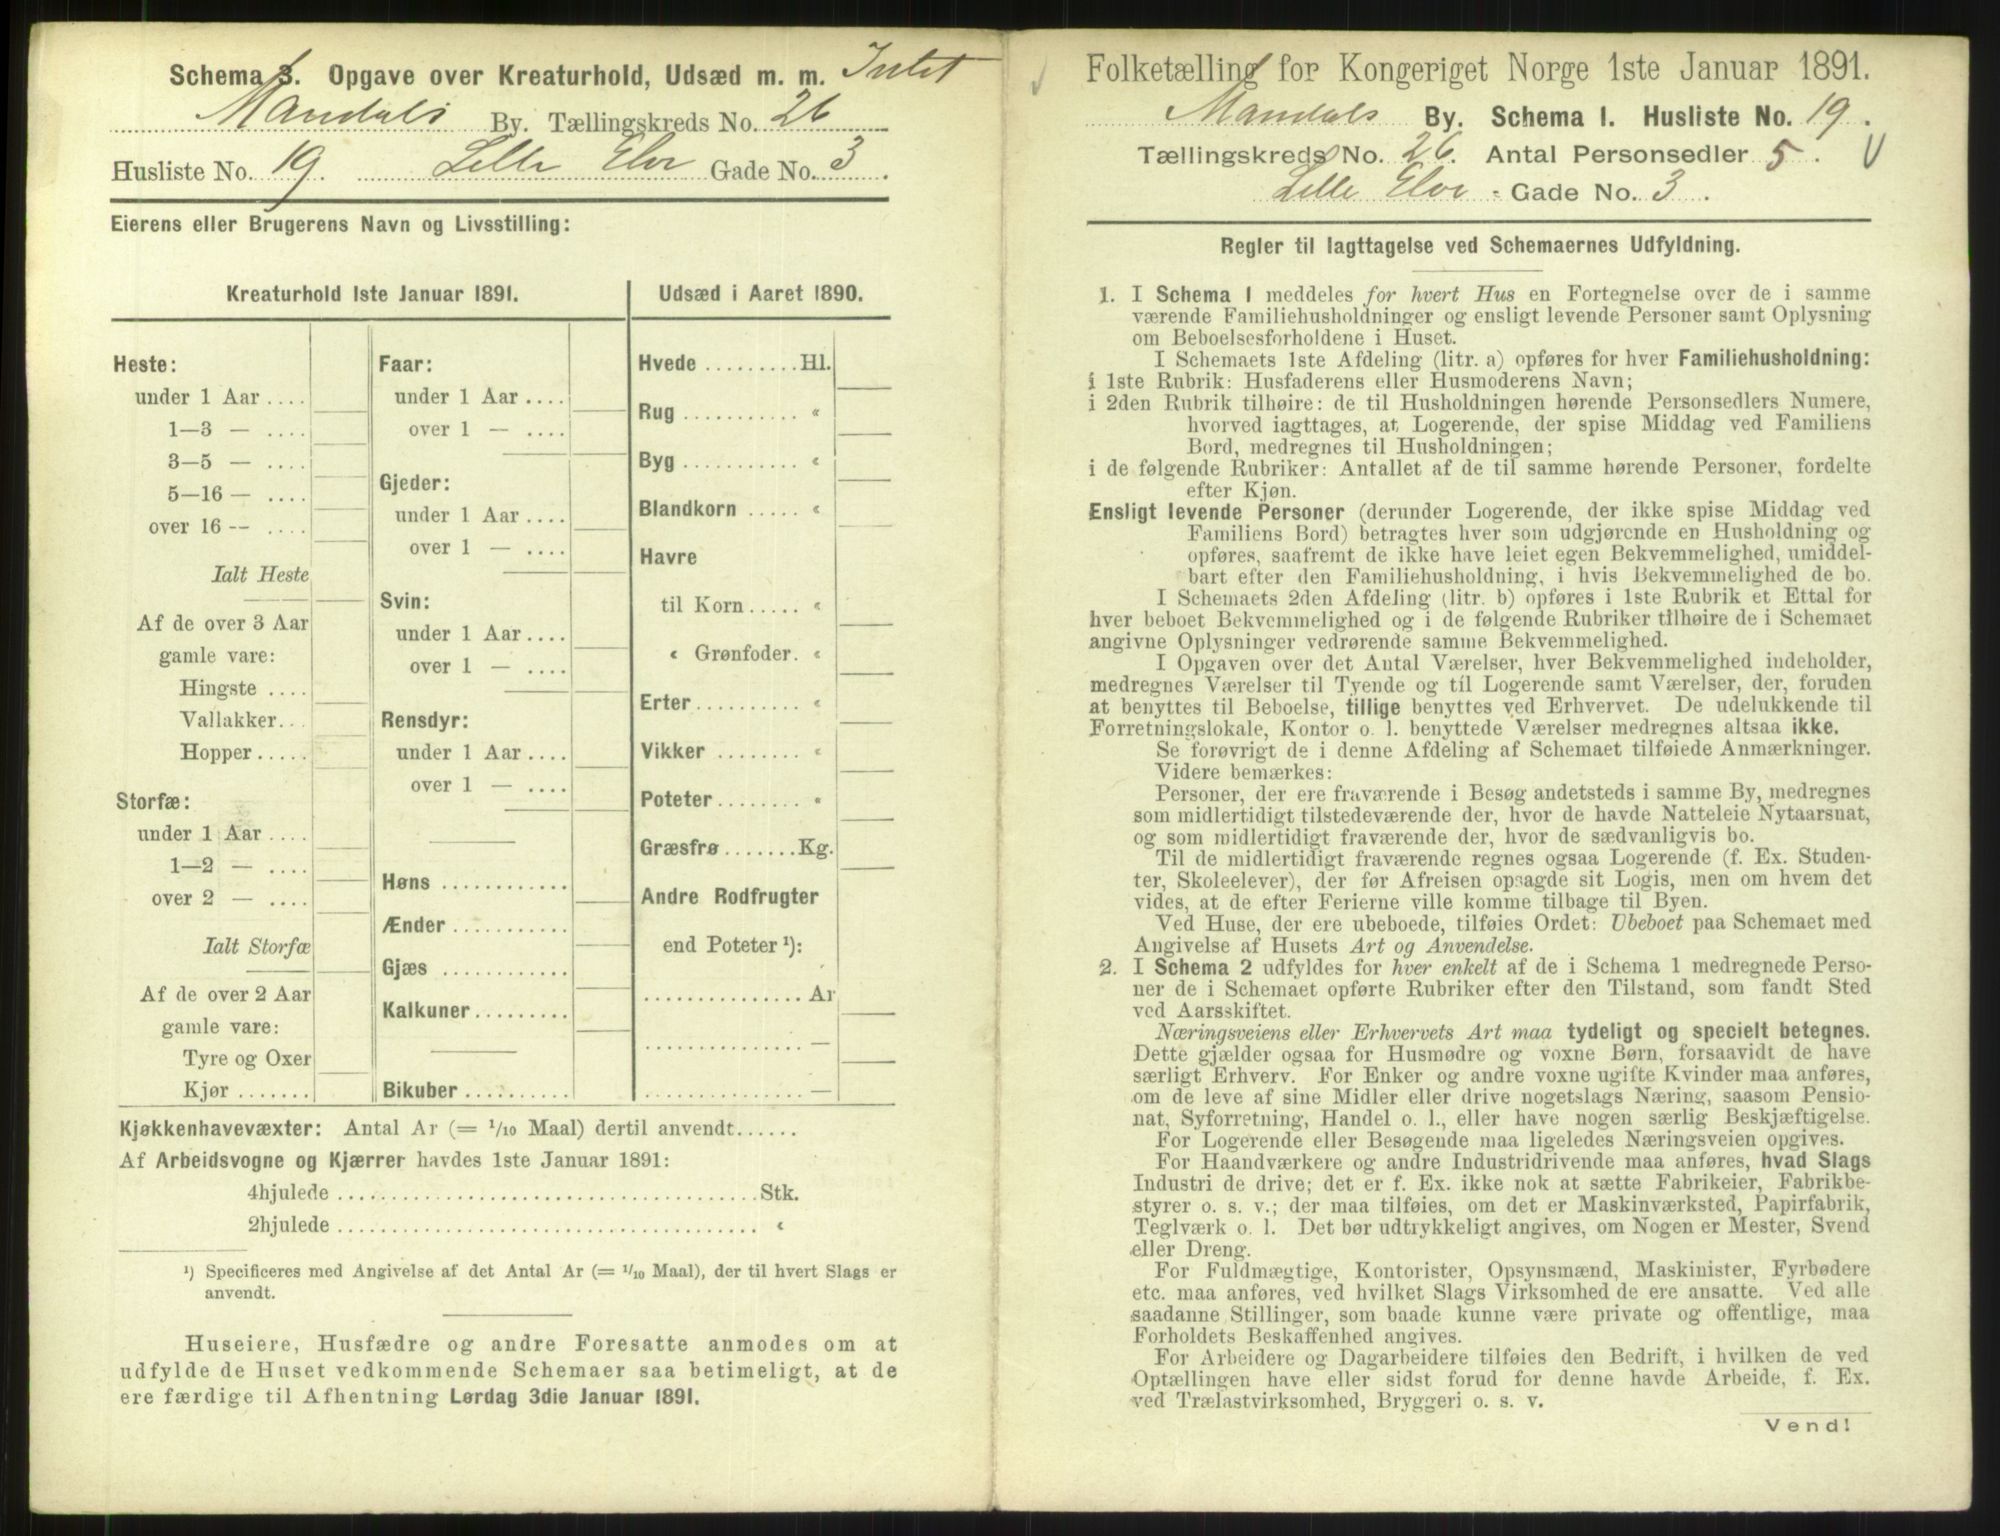 Schema 3. Opgave over Kreaturhold, Udsæd m. m. Intet
Mandals By. Tællingskreds No. 26
Husliste No. 19. Lille Elve Gade No. 3.
Eierens eller Brugerens Navn og Livsstilling:
Kreaturhold 1ste Januar 1891.
Heste:
under 1 Aar ....
1—3 — ....
3—5 — ....
5—16 — ....
over 16 — ....
Ialt Heste
Af de over 3 Aar
gamle vare:
Hingste ....
Vallakker...
Hopper.....
Storfæ:
under 1 Aar ....
1—2 — ....
over 2 — ....
Ialt Storfæ
Af de over 2 Aar
gamle vare:
Tyre og Oxer
Kjør .......
Faar:
under 1 Aar ....
over 1 — ....
Gjeder:
under 1 Aar ....
over 1 — ....
Svin:
under 1 Aar ....
over 1 — ....
Rensdyr:
under 1 Aar ....
over 1 — ....
Høns ............
Ænder ...........
Gjæs ............
Kalkuner.........
Bikuber ..........
Udsæd i Aaret 1890.
Hvede .........Hl.
Rug ........... «
Byg ........... «
Blandkorn ..... «
Havre
til Korn ..... «
« Grønfoder. «
Erter .......... «
Vikker ........ «
Poteter........ «
Græsfrø .......Kg.
Andre Rodfrugter
end Poteter ¹):
............... Ar
............... —
............... —
Kjøkkenhavevæxter: Antal Ar (= 1/10 Maal) dertil anvendt......
Af Arbeidsvogne og Kjærrer havdes 1ste Januar 1891:
4hjulede ........................................Stk.
2hjulede ........................................ «
¹) Specificeres med Angivelse af det Antal Ar (= 1/10 Maal), der til hvert Slags er
anvendt.
Huseiere, Husfædre og andre Foresatte anmodes om at
udfylde de Huset vedkommende Schemaer saa betimeligt, at de
ere færdige til Afhentning Lørdag 3die Januar 1891.
Folketælling for Kongeriget Norge 1ste Januar 1891.
Mandals By. Schema 1. Husliste No. 19.
Tællingskreds No. 26. Antal Personsedler 5.
Lille Elve - Gade No. 3.
Regler til Iagttagelse ved Schemaernes Udfyldning.
1. I Schema 1 meddeles for hvert Hus en Fortegnelse over de i samme
værende Familiehusholdninger og ensligt levende Personer samt Oplysning
om Beboelsesforholdene i Huset.
I Schemaets 1ste Afdeling (litr. a) opføres for hver Familiehusholdning:
i 1ste Rubrik: Husfaderens eller Husmoderens Navn;
i 2den Rubrik tilhøire: de til Husholdningen hørende Personsedlers Numere,
hvorved iagttages, at Logerende, der spise Middag ved Familiens
Bord, medregnes til Husholdningen;
i de følgende Rubriker: Antallet af de til samme hørende Personer, fordelte
efter Kjøn.
Ensligt levende Personer (derunder Logerende, der ikke spise Middag ved
Familiens Bord) betragtes hver som udgjørende en Husholdning og
opføres, saafremt de ikke have leiet egen Bekvemmelighed, umiddel-
bart efter den Familiehusholdning, i hvis Bekvemmelighed de bo.
I Schemaets 2den Afdeling (litr. b) opføres i 1ste Rubrik et Ettal for
hver beboet Bekvemmelighed og i de følgende Rubriker tilhøire de i Schemaet
angivne Oplysninger vedrørende samme Bekvemmelighed.
I Opgaven over det Antal Værelser, hver Bekvemmelighed indeholder,
medregnes Værelser til Tyende og til Logerende samt Værelser, der, foruden
at benyttes til Beboelse, tillige benyttes ved Erhvervet. De udelukkende til
Forretningslokale, Kontor o. l. benyttede Værelser medregnes altsaa ikke.
Se forøvrigt de i denne Afdeling af Schemaet tilføiede Anmærkninger.
Videre bemærkes:
Personer, der ere fraværende i Besøg andetsteds i samme By, medregnes
som midlertidigt tilstedeværende der, hvor de havde Natteleie Nytaarsnat,
og som midlertidigt fraværende der, hvor de sædvanligvis bo.
Til de midlertidigt fraværende regnes ogsaa Logerende (f. Ex. Studen-
ter, Skoleelever), der før Afreisen opsagde sit Logis, men om hvem det
vides, at de efter Ferierne ville komme tilbage til Byen.
Ved Huse, der ere ubeboede, tilføies Ordet: Ubeboet paa Schemaet med
Angivelse af Husets Art og Anvendelse.
2. I Schema 2 udfyldes for hver enkelt af de i Schema 1 medregnede Perso-
ner de i Schemaet opførte Rubriker efter den Tilstand, som fandt Sted
ved Aarsskiftet.
Næringsveiens eller Erhvervets Art maa tydeligt og specielt betegnes.
Dette gjælder ogsaa for Husmødre og voxne Børn, forsaavidt de have
særligt Erhverv. For Enker og andre voxne ugifte Kvinder maa anføres,
om de leve af sine Midler eller drive nogetslags Næring, saasom Pensio-
nat, Syforretning, Handel o. l., eller have nogen særlig Beskjæftigelse.
For Logerende eller Besøgende maa ligeledes Næringsveien opgives.
For Haandværkere og andre Industridrivende maa anføres, hvad Slags
Industri de drive; det er f. Ex. ikke nok at sætte Fabrikeier, Fabrikbe-
styrer o. s. v.; der maa tilføies, om det er Maskinværksted, Papirfabrik,
Teglværk o. l. Det bør udtrykkeligt angives, om Nogen er Mester, Svend
eller Dreng.
For Fuldmægtige, Kontorister, Opsynsmænd, Maskinister, Fyrbødere
etc. maa anføres, ved hvilket Slags Virksomhed de ere ansatte. Ved alle
saadanne Stillinger, som baade kunne være private og offentlige, maa
Forholdets Beskaffenhed angives.
For Arbeidere og Dagarbeidere tilføies den Bedrift, i hvilken de ved
Optællingen have eller sidst forud for denne havde Arbeide, f. Ex.
ved Trælastvirksomhed, Bryggeri o. s. v.
Vend!